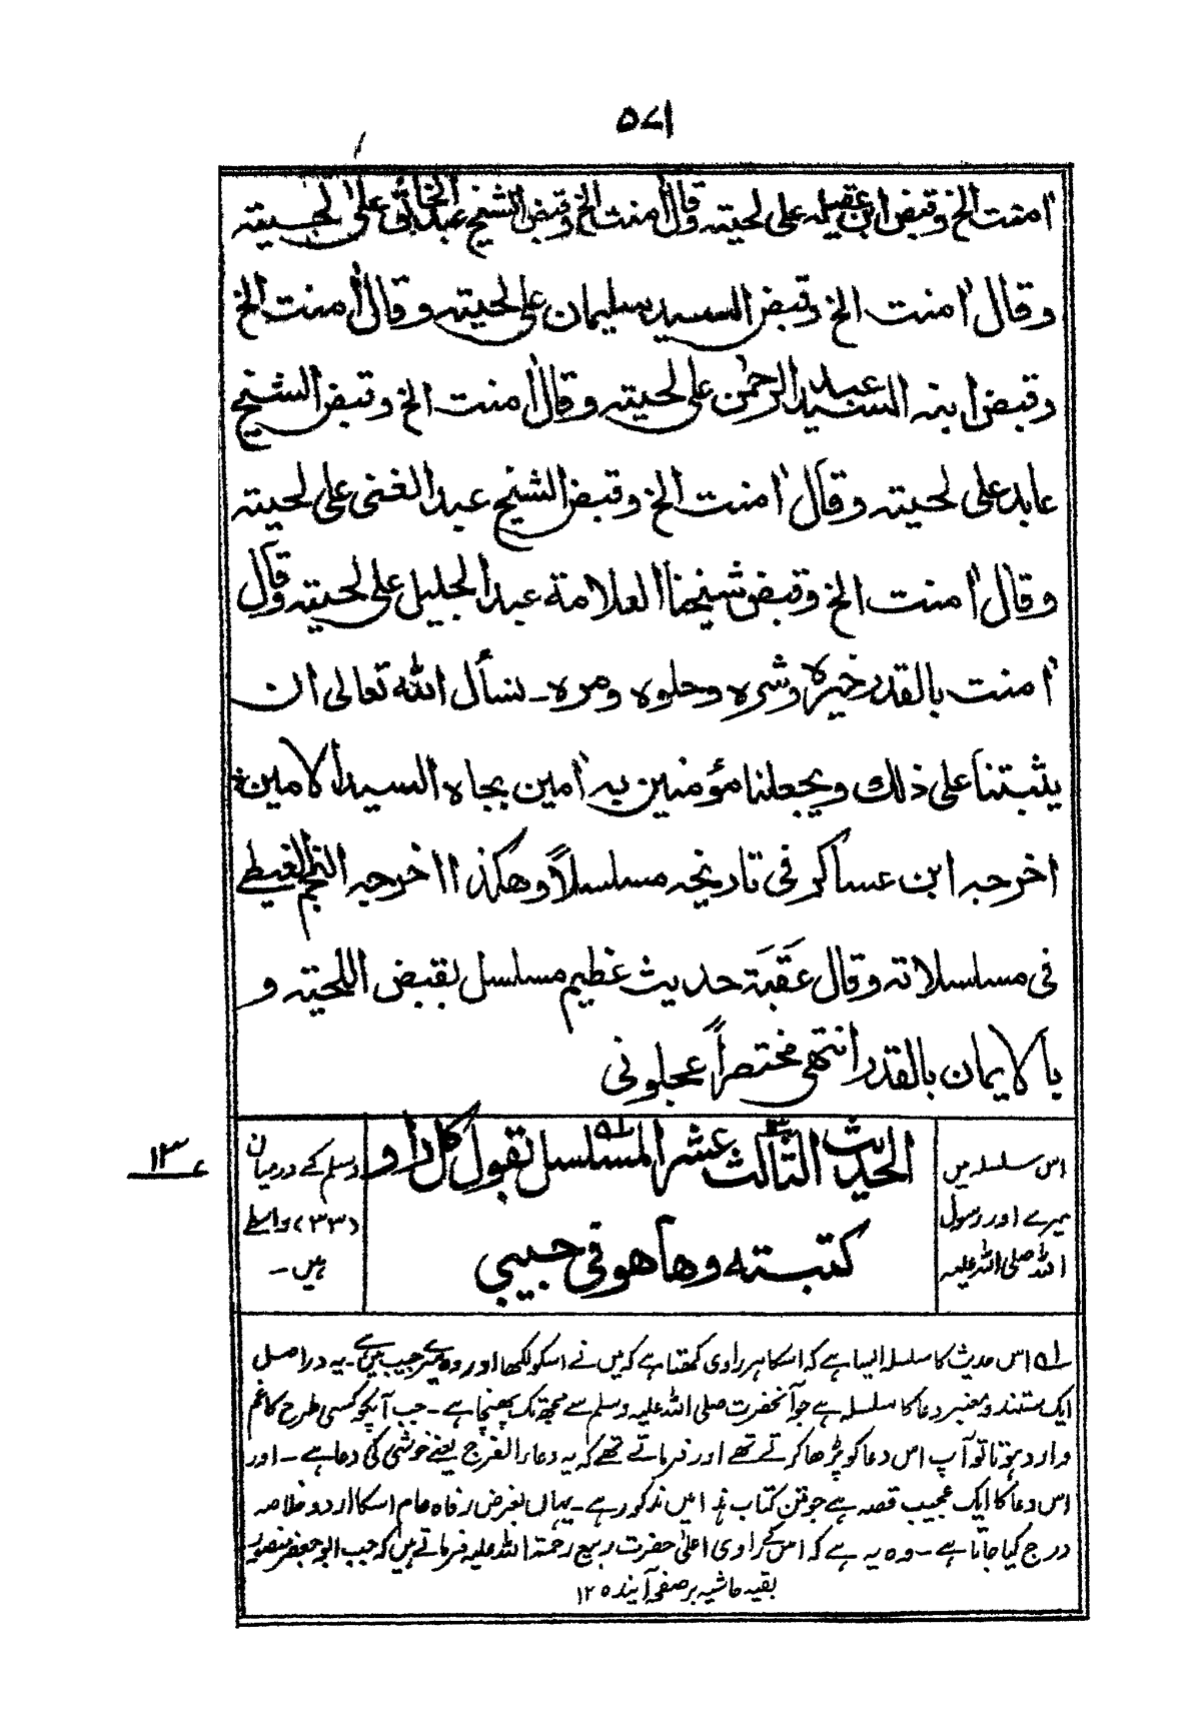 ۵۷۱
اٰمنت الخ وقبض ابن عقیلہ علی لحیتہ وقال اٰمنت الخ وقبض الشیخ عبد الخالق علی لحیتہ
وقال اٰمنت الخ وقبض السید سلیمان علی لحیتہ وقال اٰمنت الخ
وقبض ابنہ السید عبد الرحمٰن علی لحیتہ وقال اٰمنت الخ وقبض الشیخ
عابد علی لحیتہ وقال اٰمنت الخ وقبض الشیخ عبد الغنی علی لحیتہ
وقال اٰمنت الخ وقبض شیخنا العلامة عبد الجلیل علی لحیتہ وقال
اٰمنت بالقدر خیرہ وشرہ وحلوہ ومرہ۔ نسأل اللّٰہ تعالی ان
یثبتنا علی ذلك ویجعلنا مؤمنین بہ اٰمین بجاہ السید الامین
اخرجہ ابن عساکر فی تاریخہ مسلسلاً وھکذا اخرجہ النجم الغیطی
فی مسلسلاتہ وقال عَقَبَہ حدیث عظیم مسلسل بقبض اللحیتہ و
بالایمان بالقدر انتھی مختصراً عجلونی
اس سلسلہ میں
میرے اور رسول
اللہ صلی اللہ علیہ
الحدیث الثالث عشر المسلسل بقول کل راو
کتبتہ وھا ھو فی جیبی
وسلم کے درمیان
(۳۳) واسطے
ہیں۔
۱۳
لہ اس حدیث کا سلسلہ ایسا ہے کہ اسکا ہر راوی کہتا ہے کہ میں نے اسکو لکھا اور وہ میرے جیب میں ہے۔ یہ دراصل
ایک مستند و معتبر دعا کا سلسلہ ہے جو آنحضرت صلی اللہ علیہ وسلم سے مجھ تک پہنچا ہے۔ جب آپکو کسی طرح کا غم
وارد ہوتا تو آپ اس دعا کو پڑھا کرتے تھے اور فرماتے تھے کہ یہ دعاء الفرج یعنے خوشی کی دعا ہے۔ اور
اس دعا کا ایک عجیب قصہ ہے جو متن کتاب ہذا میں مذکور ہے۔ یہاں بغرض رفاہ عام اسکا اردو خلاصہ
درج کیا جاتا ہے۔ وہ یہ ہے کہ اس کے راوی اعلیٰ حضرت ربیع رحمۃ اللہ علیہ فرماتے ہیں کہ جب ابو جعفر منصور
بقیہ حاشیہ بر صفحہ آیندہ ۱۲